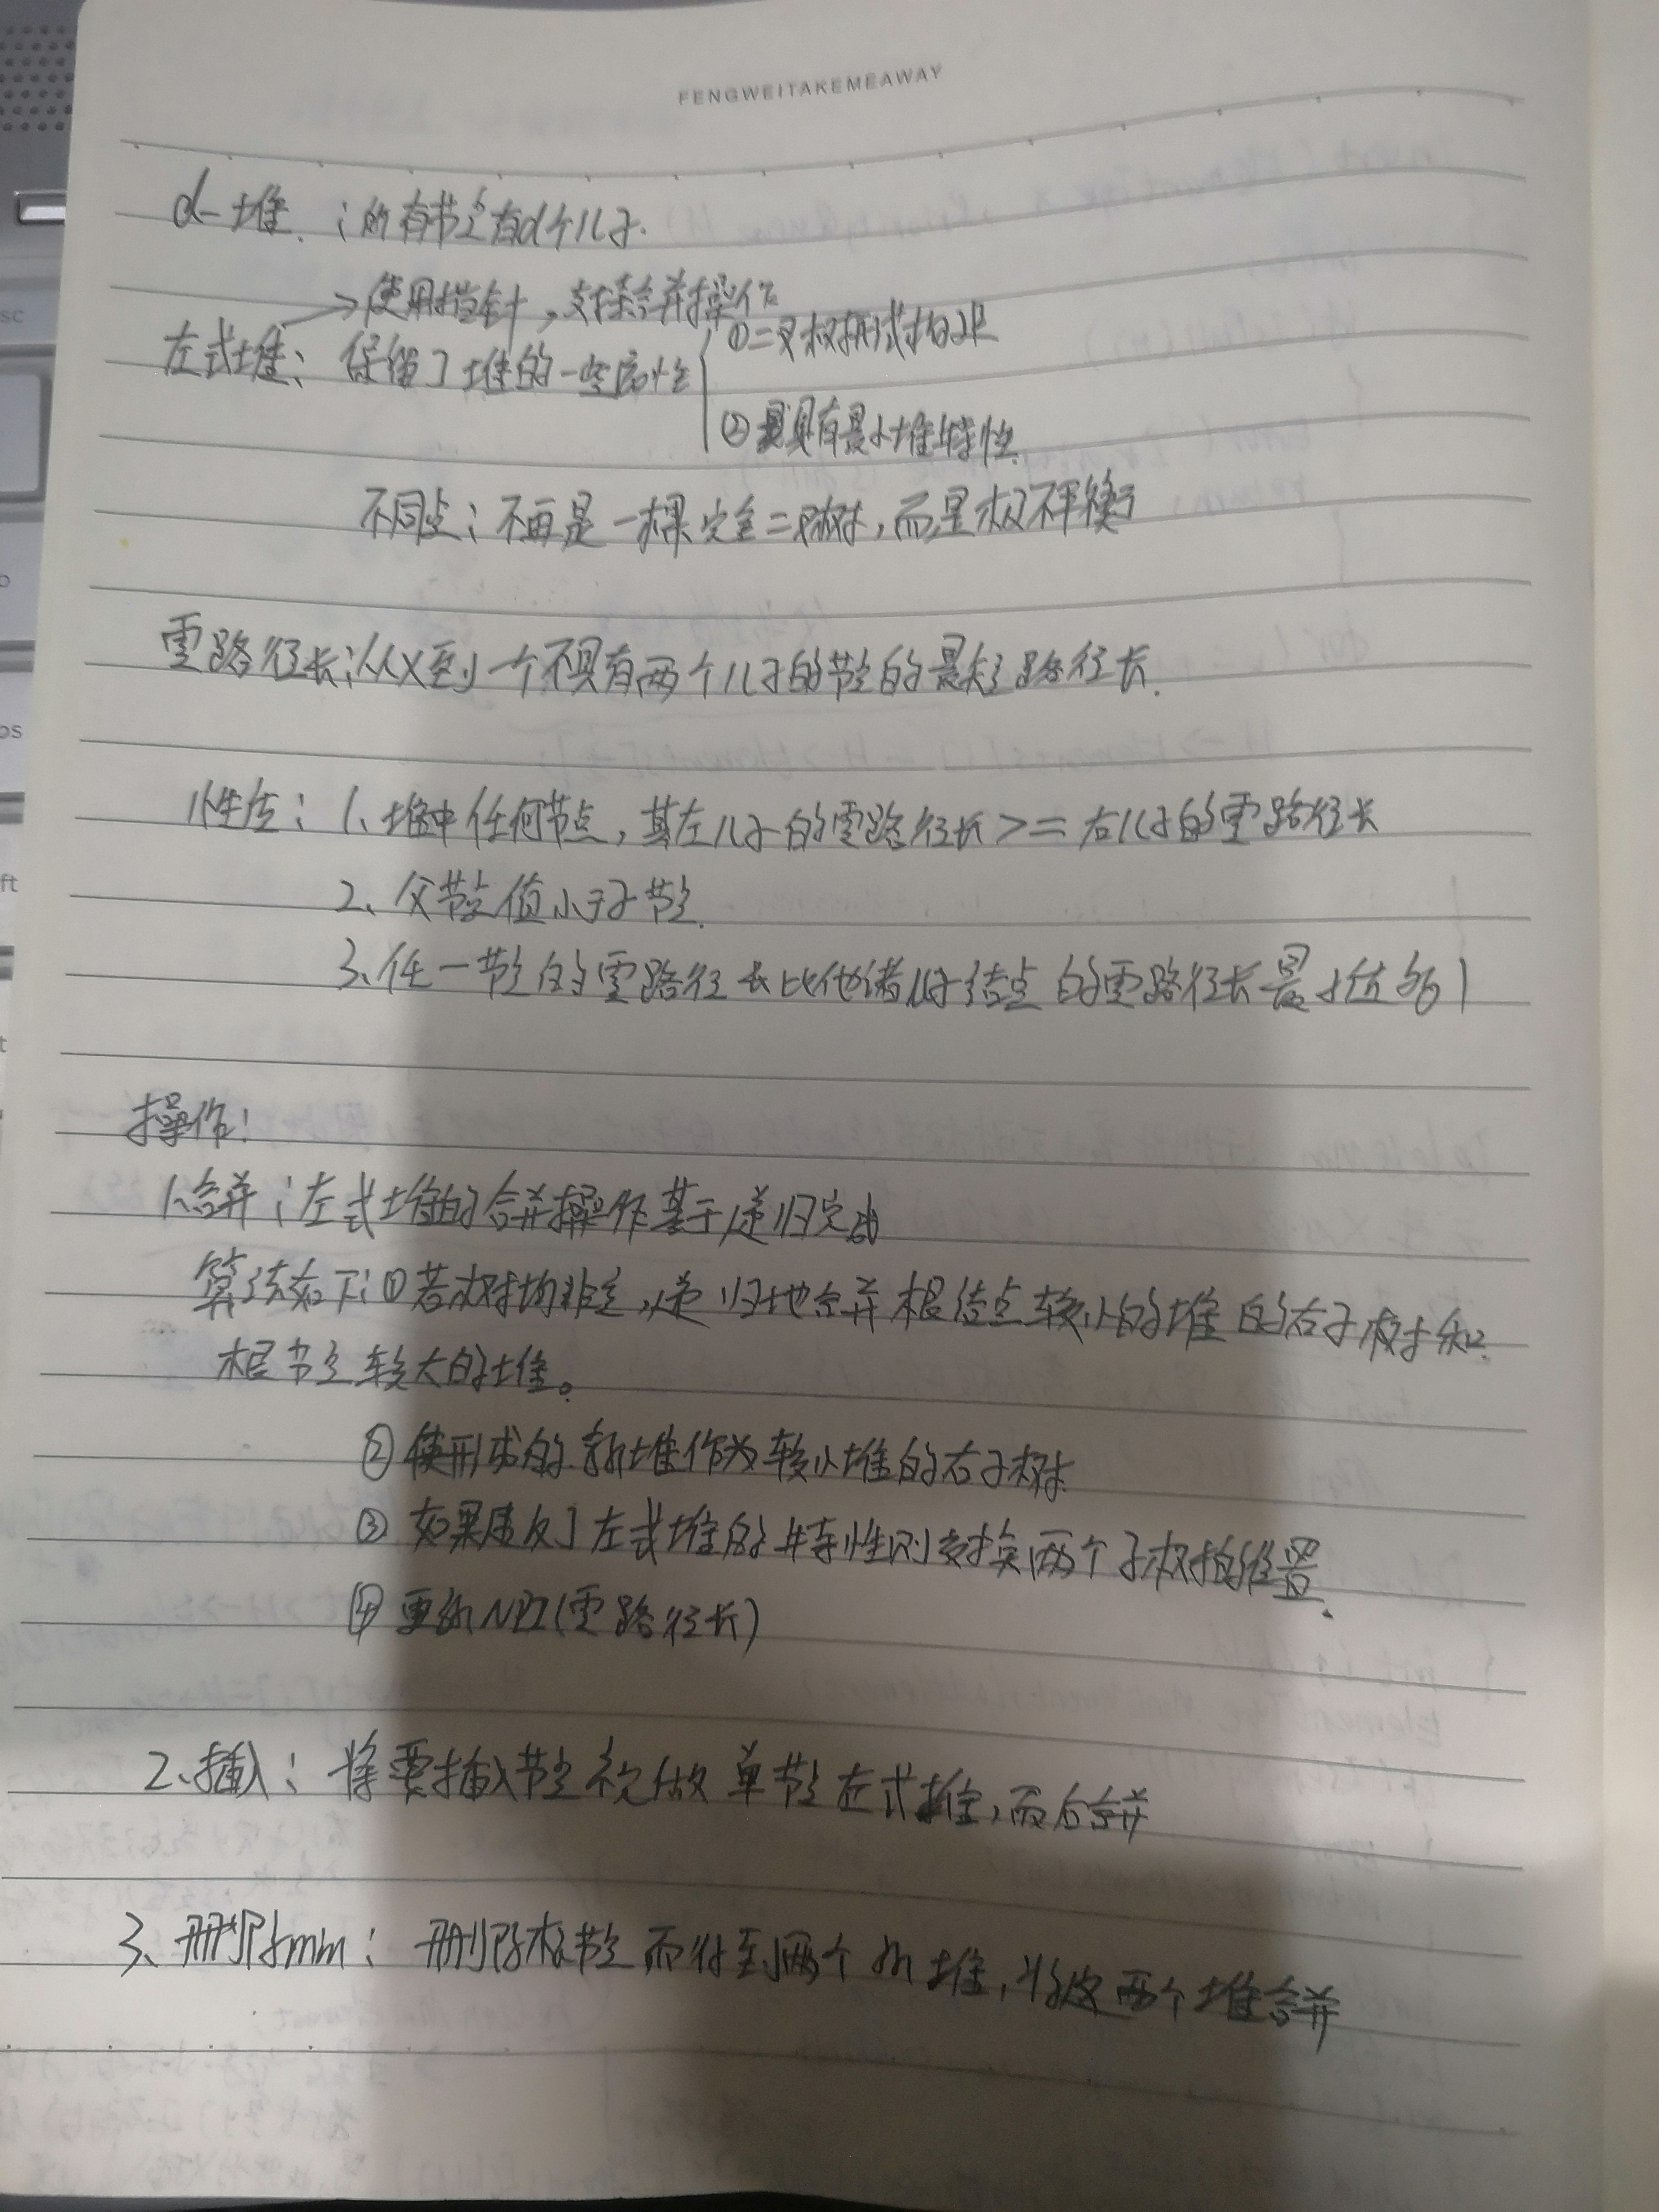 FENGWEITAKEMEAWAY
d-堆：所有节点有d个儿子.
→使用指针，支持合并操作
左式堆：保留了堆的一些属性
①二叉树形式构成
②具有最小堆特性.
不同点：不再是一棵完全二叉树，而是极不平衡
零路径长：从X到一个不具有两个儿子的节点的最短路径长.
性质：1、堆中任何节点，其左儿子的零路径长>=右儿子的零路径长
2、父节点值小于子节点.
3、任一节点的零路径长比他诸儿子结点的零路径长最小值多1
操作：
1、合并：左式堆的合并操作基于递归完成
算法如下：①若两树均非空，递归地合并根结点较小的堆的右子树和
根节点较大的堆。
②使形成的新堆作为较小堆的右子树
③如果违反了左式堆的特性则交换两个子树的位置.
④更新NPL(零路径长)
2、插入：将要插入节点视做单节点左式堆，而后合并
3、删除min：删除根节点而得到两个新堆，将这两个堆合并